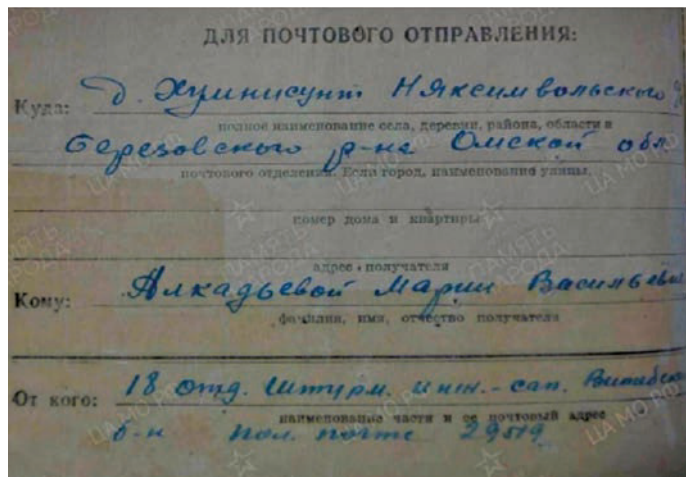 ДЛЯ ПОЧТОВОГО ОТПРАВЛЕНИЯ:
Куда: д. Хулинисунт Няксимвольского
полное наименование села, деревни, района, области и
березовского р-на Омской обл
почтового отделения. Если город, наименование улицы,
номер дома и квартиры
адрес получателя
Кому: Алкадьевой Марии Васильевы
фамилия, имя, отчество получателя
От кого: 18 отд. штурм. инж.-сап. Витебск
наименование части и ее почтовый адрес
б-н пол. почта 29519